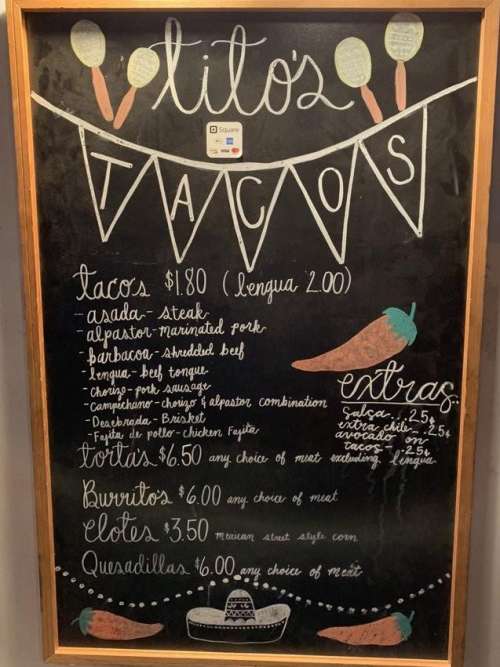 tito's
Square
VISA
TACOS
tacos $1.80 (lengua 2.00)
- asada - steak
- alpastor - marinated pork
- barbacoa - shredded beef
- lengua - beef tongue
- chorizo - pork sausage
- campechano - chorizo & alpastor combination
- Desebrada - Brisket
- Fajita de pollo - chicken Fajita
extras
salsa...25¢
extra chile...25¢
avocado on
tacos - 25¢
tortas $6.50 any choice of meat excluding lengua
Burritos $6.00 any choice of meat
elotes $3.50 mexican street style corn
Quesadillas $6.00 any choice of meat